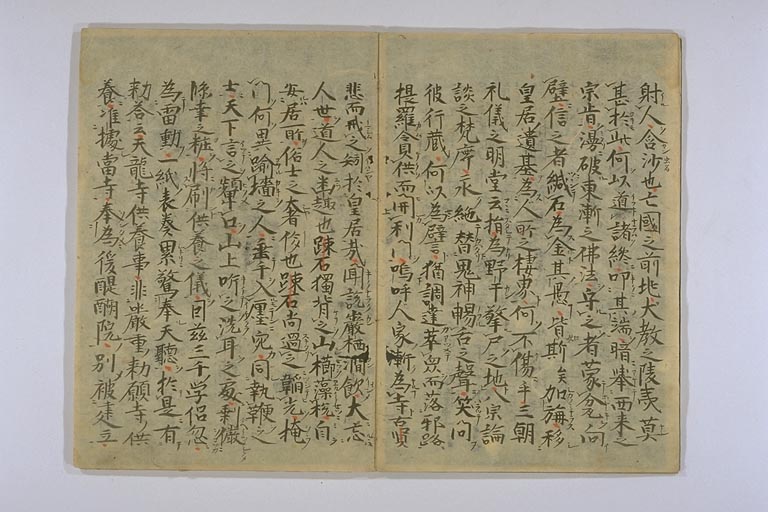 射人含沙也亡國之前北大教之陵夷莫
甚於此何以道諸総叩其端暗挙西来之
宗旨漫破東漸之佛法守之者蒙免向
壁信之者緘石為金其愚皆斯矣加旃移
皇居遺基為人所之棲界何不傷乎三朝
礼儀之明堂云指為野干争尸之地八宗論
談之梵席永絶替鬼神暢舌之聲笑問
彼行蔵何以為譬猶調達萃衆而落邪路
提羅貪供而開利門嗚呼人家漸為寺古賢
悲而戒之矧於皇居哉聞説巌栖澗飲大忘
人世道人之幽趣也疎石獨背之山櫛藻梲自
安居所俗士之奢侈也疎石尚過之韜光掩
門何異踰墻之人垂手入鄽宛同執鞭之
士天下言之嚬口山上听之洗耳之處剰儼
臨幸之粧将刷供養之儀因茲三千学侶忽
為雷動一紙表奏累驚奉天聽於是有
勅答云天龍寺供養事非厳重勅願寺供
養准據當寺奉為後醍醐院別被建立